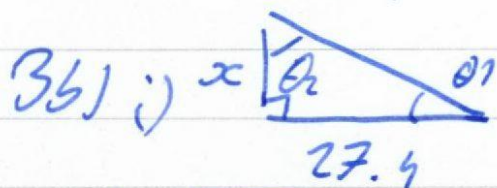 3b) i) x θ₂ θ1
27.4